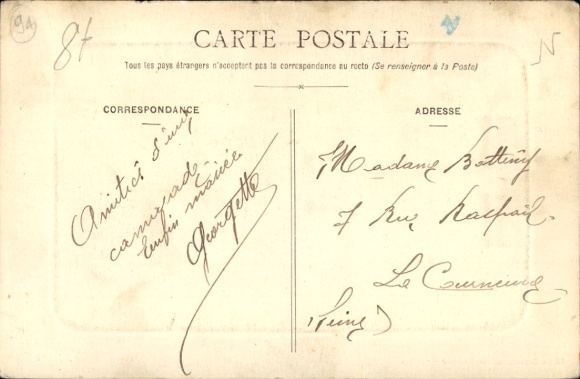 94
87
N
CARTE POSTALE
Tous les pays étrangers n'acceptent pas la correspondance au recto (Se renseigner à la Poste)
CORRESPONDANCE
Amitiés d'une
camarade
Enfin mariée
Georgette
ADRESSE
Madame Bottiny
7 Rue Raspail
La Courneuve
(Seine)